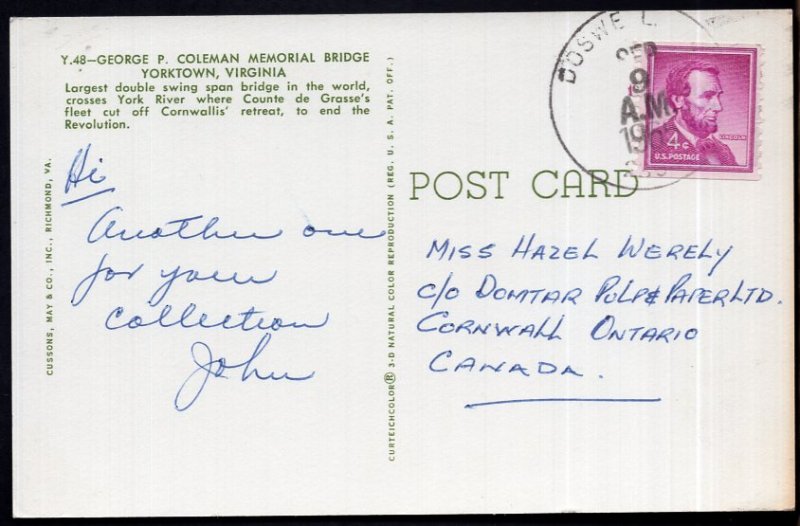 Y.48—GEORGE P. COLEMAN MEMORIAL BRIDGE
YORKTOWN, VIRGINIA
Largest double swing span bridge in the world,
crosses York River where Counte de Grasse's
fleet cut off Cornwallis' retreat, to end the
Revolution.
Hi
Another one
for your
collection
John
CUSSONS, MAY & CO., INC., RICHMOND, VA.
CURTEICHCOLOR® 3-D NATURAL COLOR REPRODUCTION (REG. U.S.A. PAT. OFF.)
POST CARD
DOSWELL
SEP
9
A.M.
4¢
LINCOLN
U.S. POSTAGE
MISS HAZEL WERELY
c/o DOMTAR PULP & PAPER LTD.
CORNWALL ONTARIO
CANADA.